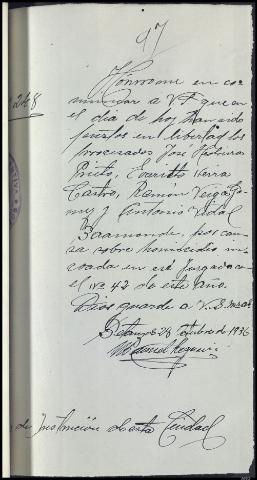 97
Hónrome en co-
municar a V.I. que en
el día de hoy han sido
248
puestos en libertad los
procesados José
Prieto, Evaristo Sierra
Castro, Ramón Veiga Go-
mez y Antonio Vidal
Baamonde, por cau-
sa sobre homicidio in-
coada en ese Juzgado con
el nº 42 de este año.
Dios guarde a V.I. m. a.
Betanzos 28 Octubre de 1936
Manuel
de Instrucción de esta Ciudad